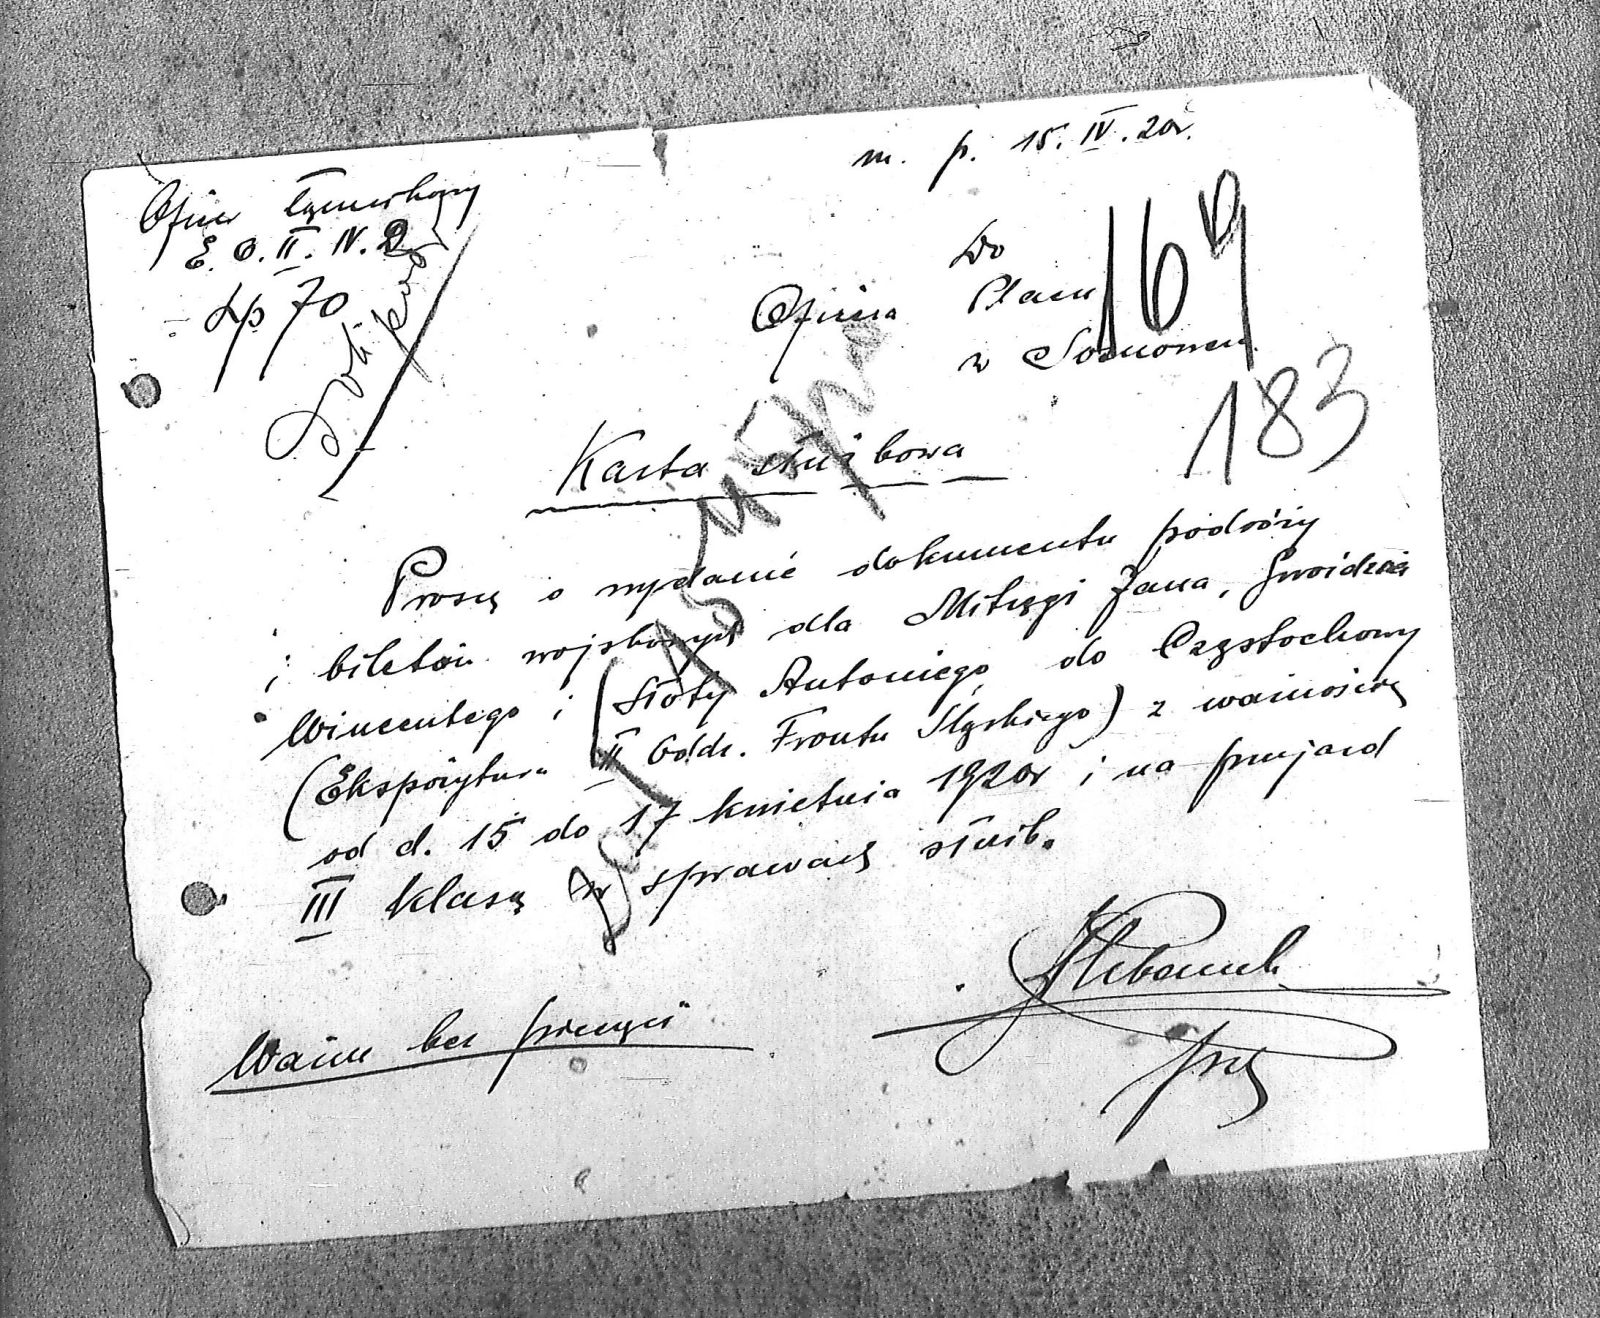 m. p. 15. IV. 20r.
Oficer Łącznikowy
E. O. II. IV. D
Lp 70
Do
Oficera Placu
w Sosnowcu
169
183
Karta służbowa
Proszę o wydanie dokumentu podróży
i biletów wojskowych dla Mitręgi Jana, Gwoździa
Wincentego i (Słoty Antoniego do Częstochowy
(Ekspozytura II Oddz. Frontu Śląskiego) z ważnością
od d. 15 do 17 kwietnia 1920r i na przejazd
III klasą w sprawach służb.
Ważne bez pieczęci